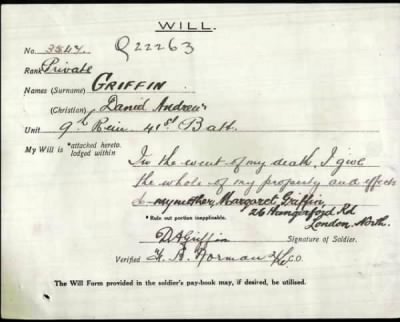 WILL.
No. 3547. Q22263
Rank Private
Names (Surname) GRIFFIN
(Christian) David Andrew
Unit 9th Rein 41st Batt.
My Will is *attached hereto.
lodged within
In the event of my death, I give
the whole of my property and effects
to my mother, Margaret Griffin,
26 Hungerford Rd
London North.
* Rule out portion inapplicable.
D A Griffin
Signature of Soldier.
Verified H. B. Norman C.O.
The Will Form provided in the soldier's pay-book may, if desired, be utilised.